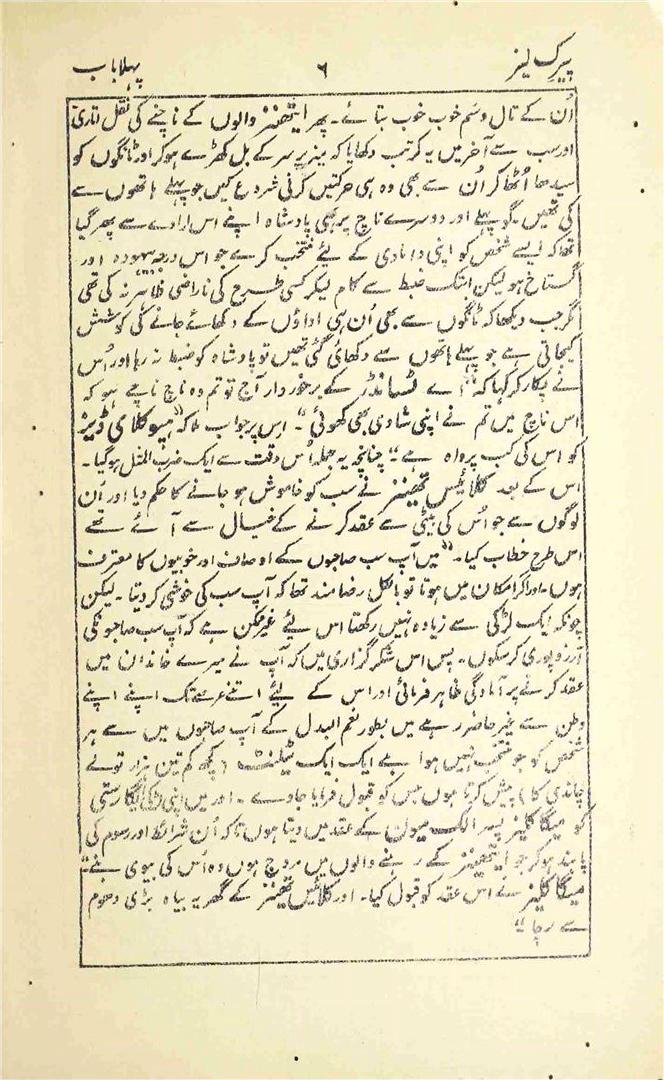 پیرک لیز
۶
پہلا باب
اُن کے تال وسَم خوب خوب بتائے۔ پھر ایتھنز والوں کے ناچنے کی نقل اتاری
اور سب سے آخر میں یہ کرتب دکھایا کہ میز پر سر کے بل کھڑے ہو کر اور ٹانگوں کو
سیدھا اُٹھا کر اُن سے بھی وہ ہی حرکتیں کرنی شروع کیں جو پہلے ہاتھوں سے
کی تھیں۔ گو پہلے اور دوسرے ناچ پر بھی پادشاہ اپنے اس ارادے سے پھر گیا
تھا کہ ایسے شخص کو اپنی دامادی کے لئے منتخب کرے جو اس درجہ بیہودہ اور
گستاخ ہو لیکن ابتک ضبط سے کام لیکر کسی طرح کی ناراضی ظاہر نہ کی تھی
مگر جب دیکھا کہ ٹانگوں سے بھی اُن ہی اداؤں کے دکھائے جانے کی کوشش
کیجاتی ہے جو پہلے ہاتھوں سے دکھائی گئی تھیں تو پادشاہ کو ضبط نہ رہا اور اُس
نے پکار کر کہا کہ ”اے ٹسانڈر کے برخوردار آج تو تم وہ ناچ ناچے ہو کہ
اس ناچ میں تم نے اپنی شادی بھی کھوئی“۔ اس پر جواب ملا کہ ”ہیپوکلای ڈیز
کو اس کی کب پرواہ ہے“۔ چنانچہ یہ جملہ اُس وقت سے ایک ضرب المثل ہو گیا۔
اس کے بعد کلائیس تھینز نے سب کو خاموش ہو جانے کا حکم دیا اور اُن
لوگوں سے جو اُس کی بیٹی سے عقد کرنے کے خیال سے آئے تھے
اس طرح خطاب کیا۔ ”میں آپ سب صاحبوں کے اوصاف اور خوبیوں کا معترف
ہوں۔ اور اگر امکان میں ہوتا تو بالکل رضامند تھا کہ آپ سب کی خوشی کر دیتا۔ لیکن
چونکہ ایک لڑکی سے زیادہ نہیں رکھتا اس لئے غیر ممکن ہے کہ آپ سب صاحبونکی
آرزو پوری کر سکوں۔ پس اس شکر گزاری میں کہ آپ نے میرے خاندان میں
عقد کرنے پر آمادگی ظاہر فرمائی اور اس کے لئے اتنے عرصے تک اپنے اپنے
وطن سے غیر حاضر رہے میں بطور نعم البدل کے آپ صاحبوں میں سے ہر
شخص کو جو منتخب نہیں ہوا ہے ایک ایک ٹیلنٹ (کچھ کم تین ہزار تولے
چاندی کا) پیش کرتا ہوں جس کو قبول فرمایا جاوے۔ اور میں اپنی ایگارستی
کو میگا کلیز پسر الک میون کے عقد میں دیتا ہوں تاکہ اُن شرائط اور رسوم کی
پابند ہو کر جو ایتھنز کے رہنے والوں میں مروج ہوں وہ اُس کی بیوی بنے“۔
میگا کلیز نے اس عقد کو قبول کیا۔ اور کلائیس تھینز کے گھر یہ بیاہ بڑی دھوم
سے رچا“